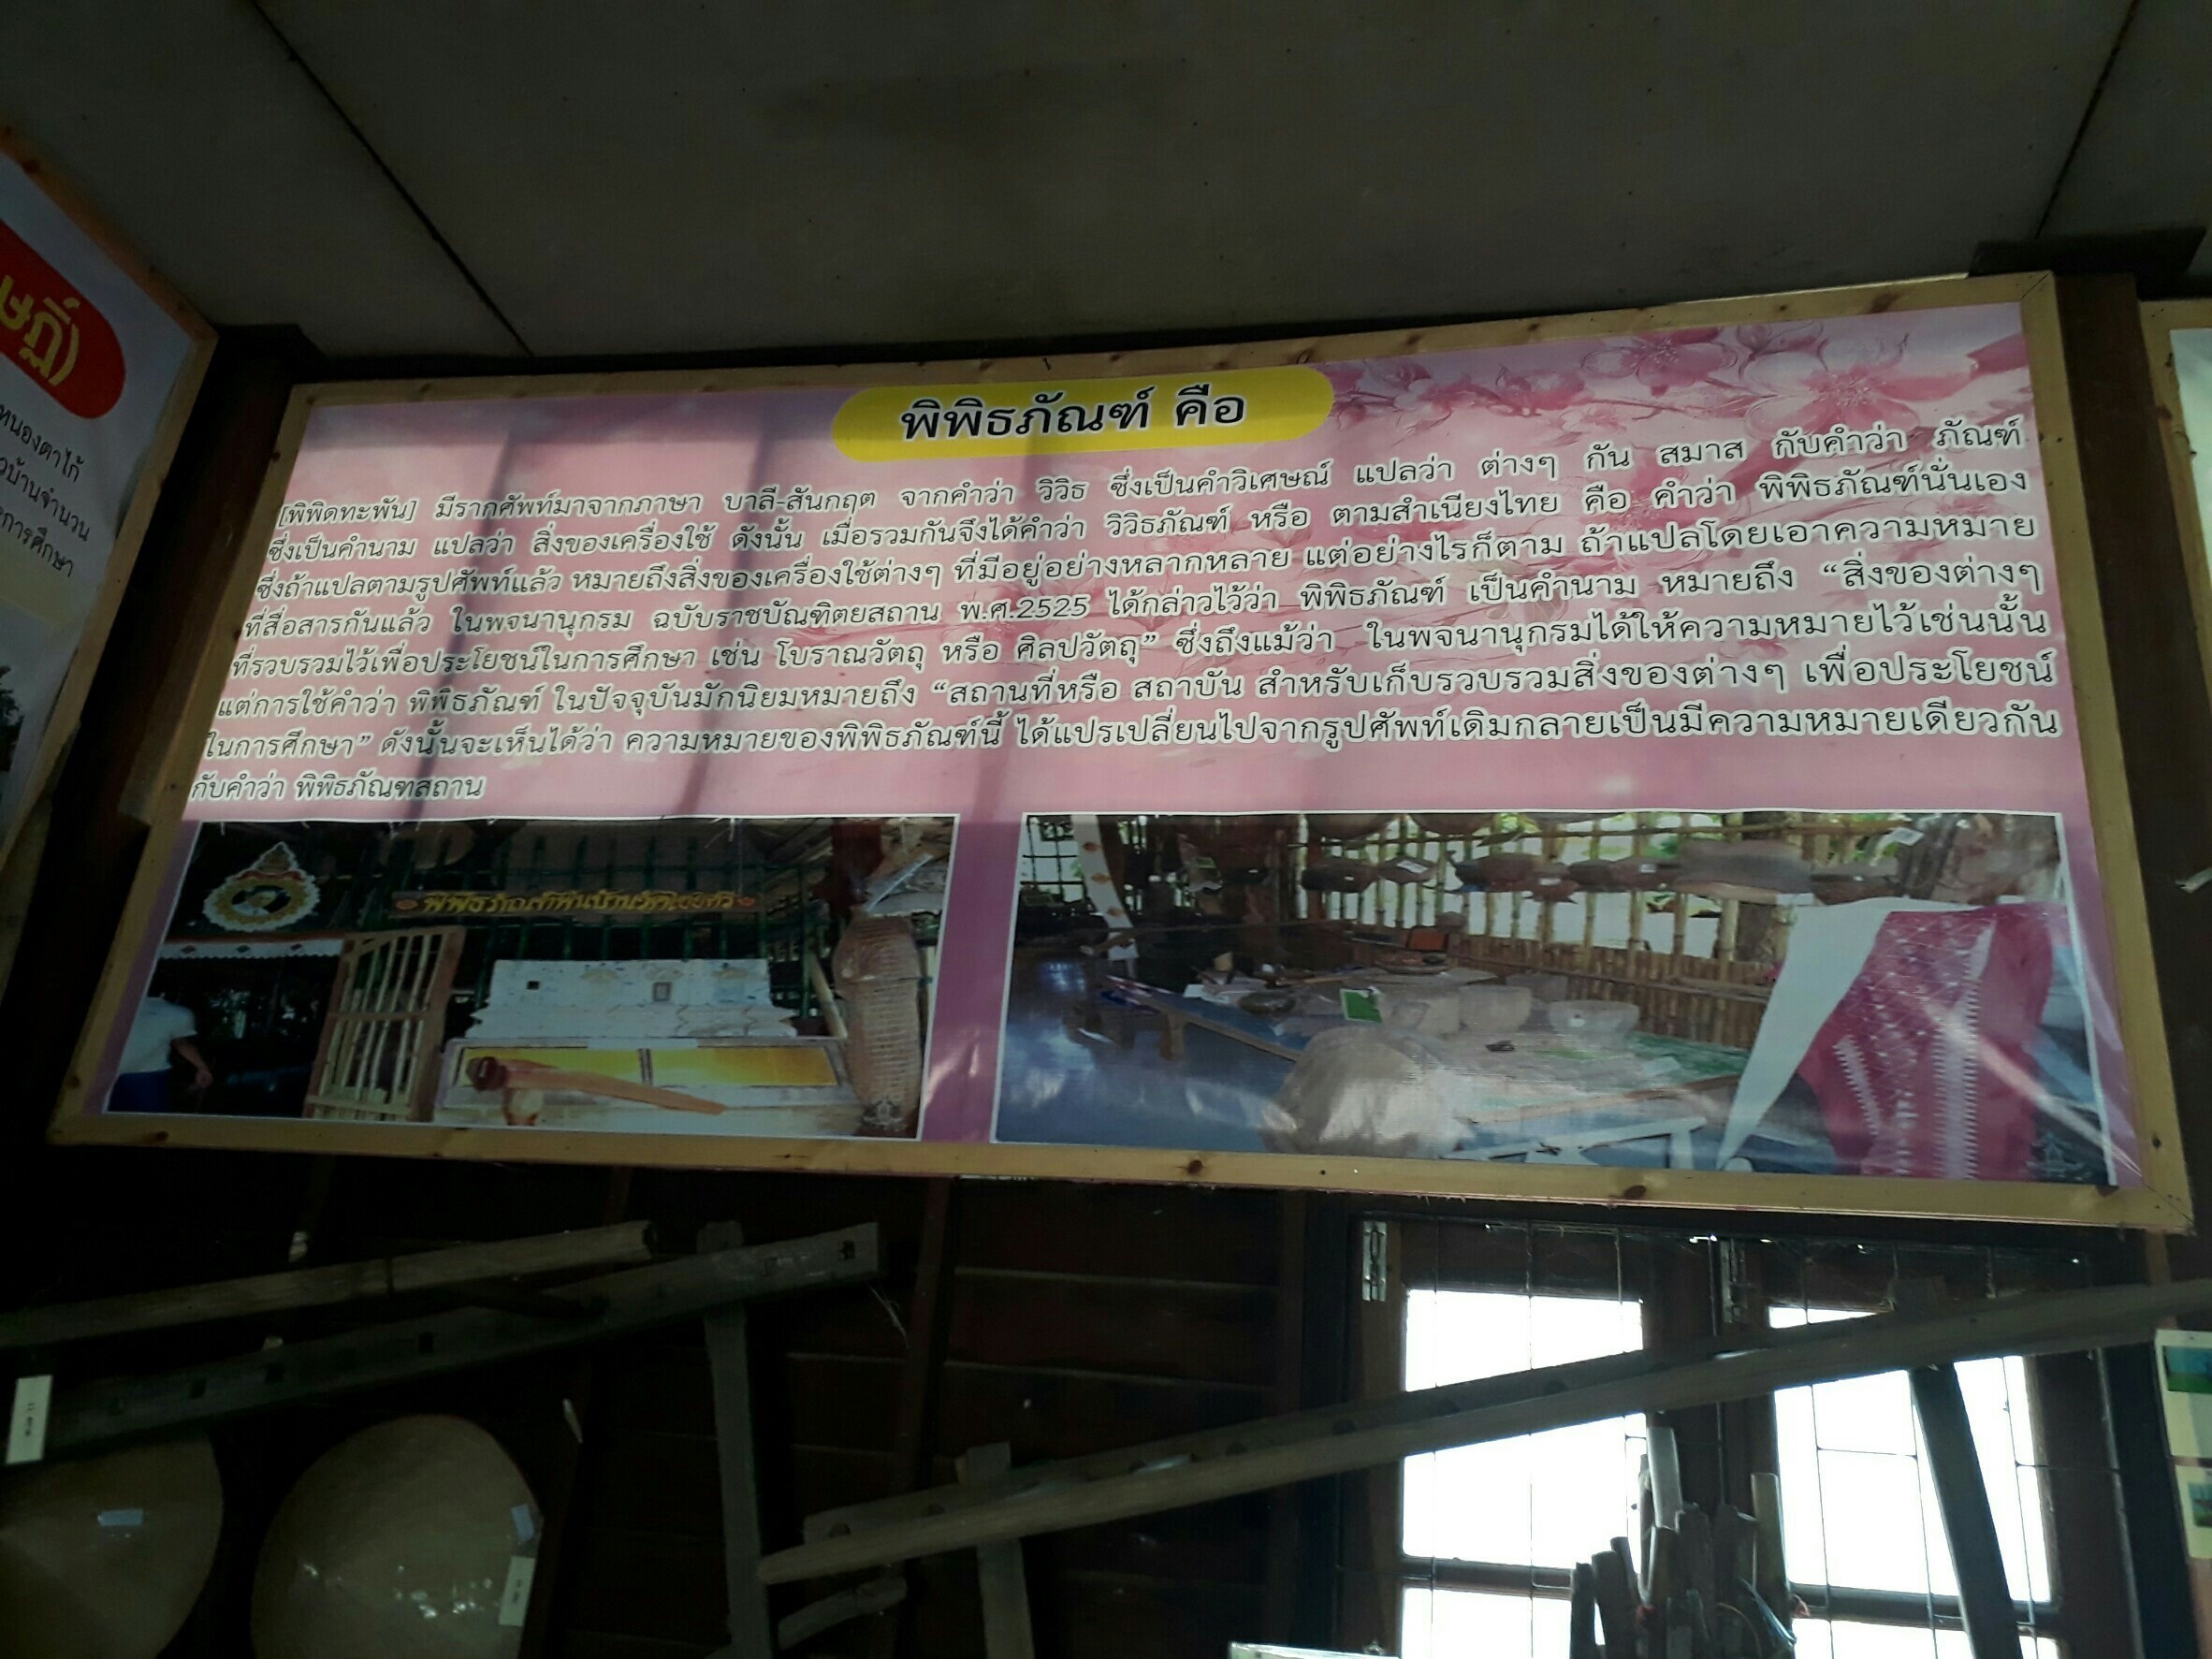 พิพิธภัณฑ์ คือ
[พิพิดทะพัน] มีรากศัพท์มาจากภาษา บาลี-สันกฤต จากคำว่า วิวิธ ซึ่งเป็นคำวิเศษณ์ แปลว่า ต่างๆ กัน สมาส กับคำว่า ภัณฑ์
ซึ่งเป็นคำนาม แปลว่า สิ่งของเครื่องใช้ ดังนั้น เมื่อรวมกันจึงได้คำว่า วิวิธภัณฑ์ หรือ ตามสำเนียงไทย คือ คำว่า พิพิธภัณฑ์นั่นเอง
ซึ่งถ้าแปลตามรูปศัพท์แล้ว หมายถึงสิ่งของเครื่องใช้ต่างๆ ที่มีอยู่อย่างหลากหลาย แต่อย่างไรก็ตาม ถ้าแปลโดยเอาความหมาย
ที่สื่อสารกันแล้ว ในพจนานุกรม ฉบับราชบัณฑิตยสถาน พ.ศ.2525 ได้กล่าวไว้ว่า พิพิธภัณฑ์ เป็นคำนาม หมายถึง “สิ่งของต่างๆ
ที่รวบรวมไว้เพื่อประโยชน์ในการศึกษา เช่น โบราณวัตถุ หรือ ศิลปวัตถุ” ซึ่งถึงแม้ว่า ในพจนานุกรมได้ให้ความหมายไว้เช่นนั้น
แต่การใช้คำว่า พิพิธภัณฑ์ ในปัจจุบันมักนิยมหมายถึง “สถานที่หรือ สถาบัน สำหรับเก็บรวบรวมสิ่งของต่างๆ เพื่อประโยชน์
ในการศึกษา” ดังนั้นจะเห็นได้ว่า ความหมายของพิพิธภัณฑ์นี้ ได้แปรเปลี่ยนไปจากรูปศัพท์เดิมกลายเป็นมีความหมายเดียวกัน
กับคำว่า พิพิธภัณฑสถาน
ทหนองตาไก้
วบ้านจำนวน
การศึกษา